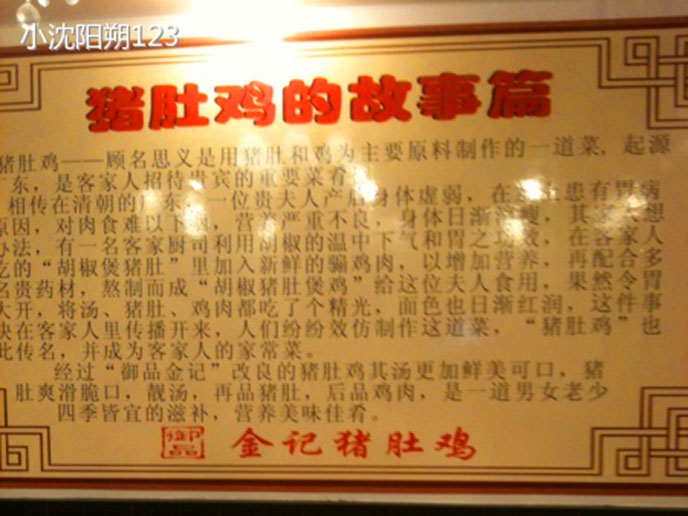 小沈阳朔123
猪肚鸡的故事篇
猪肚鸡——顾名思义是用猪肚和鸡为主要原料制作的一道菜，起源
广东，是客家人招待贵宾的重要菜肴。
相传在清朝的广东，一位贵夫人产后身体虚弱，在 患有胃病
原因，对肉食难以下咽，营养严重不良，身体日渐消瘦，其 想
办法，有一名客家厨司利用胡椒的温中下气和胃之功效，在客家人
吃的“胡椒煲猪肚”里加入新鲜的骟鸡肉，以增加营养，再配合多
名贵药材，熬制而成“胡椒猪肚煲鸡”给这位夫人食用，果然令胃
大开，将汤、猪肚、鸡肉都吃了个精光，面色也日渐红润，这件事
快在客家人里传播开来，人们纷纷效仿制作这道菜，“猪肚鸡”也
此传名，并成为客家人的家常菜。
经过“御品金记”改良的猪肚鸡其汤更加鲜美可口，猪
肚爽滑脆口，靓汤，再品猪肚，后品鸡肉，是一道男女老少
四季皆宜的滋补，营养美味佳肴。
御品 金记猪肚鸡